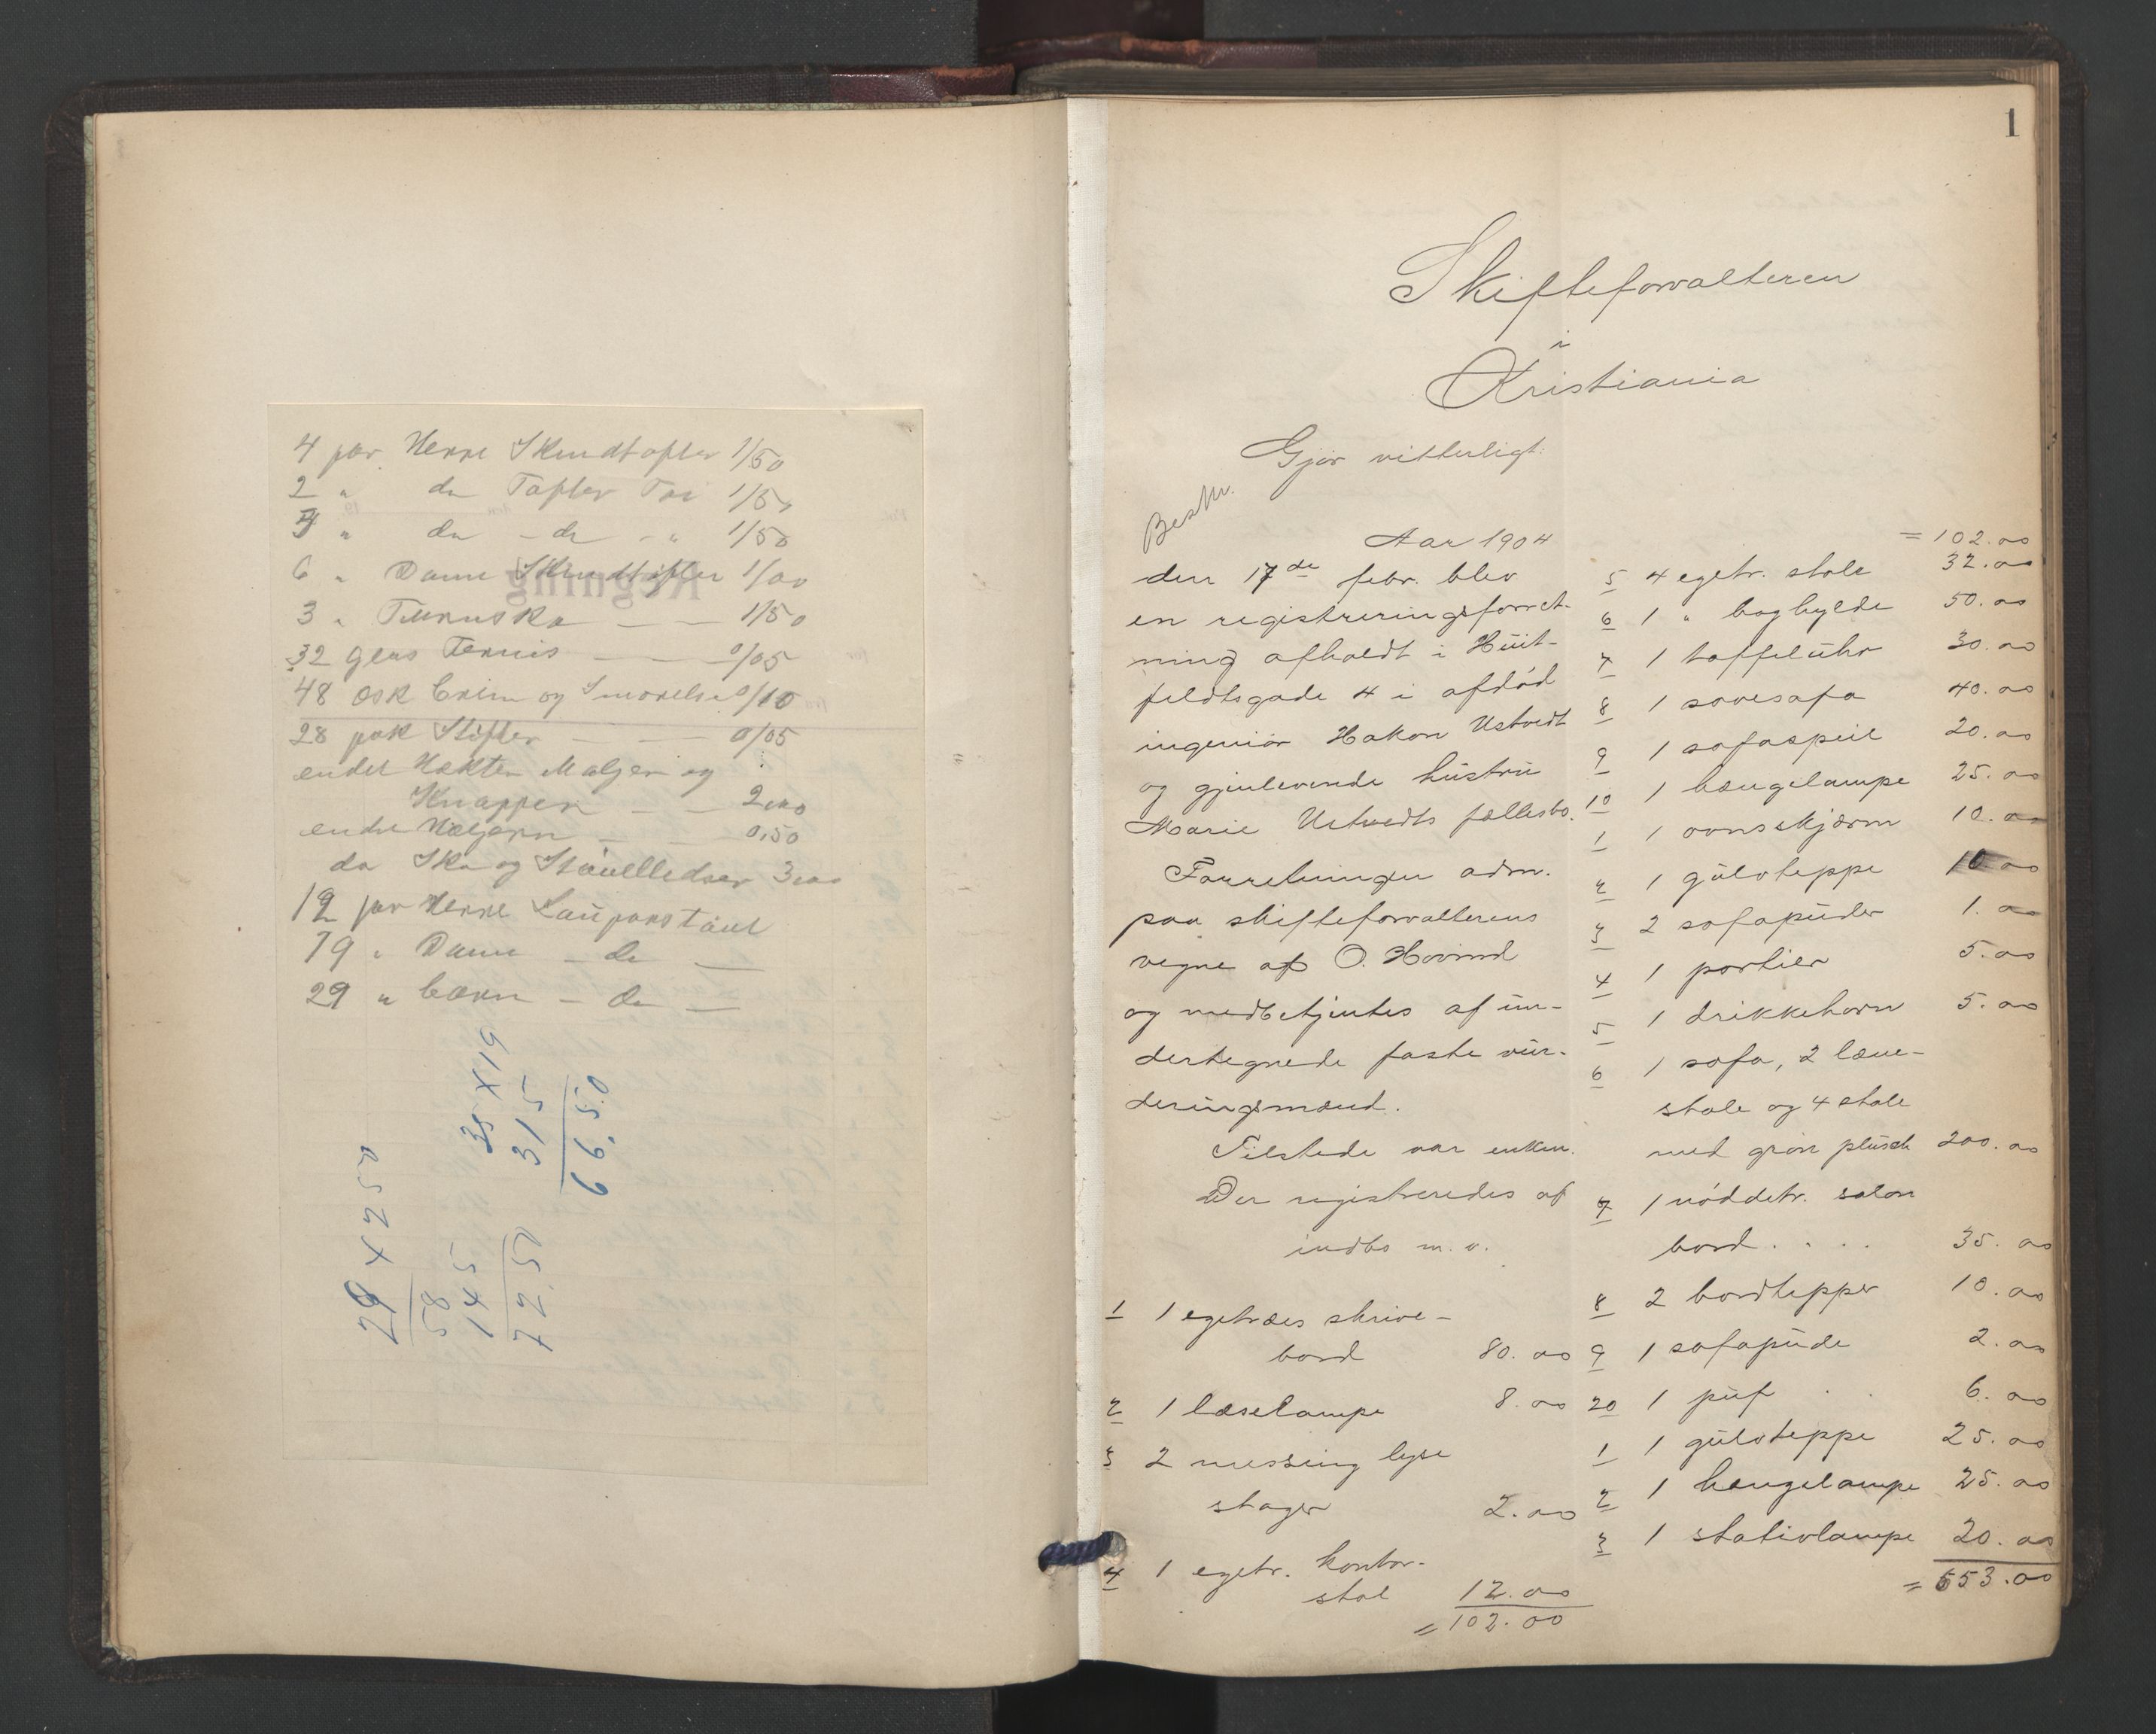 4 par Herre Skindtøfler 1/50
2 " do Tøfler Tøi 1/50
4 " do - do - " 1/50
6 " Dame Skindtøfler 1/00
3 " Turnsko — — 1/50
32 Glas Fernis — — 0/05
48 æsk Creme og Smørelse 0/10
28 pak Stifter — — 0/05
endel Hækter Maljer og
Knapper — — 2.00
endel — 0,50
do Sko og Støvelledser 3.00
19 par Herre
19 " Dame — do —
29 " Børn — do —
35 x 19
315
66.50
29 x 250
58
145
72.50
Regning
1
Skifteforvalteren
i
Kristiania
Gjør vitterligt:
Besk.
Aar 1904
den 17de febr. blev
en registreringsforret-
ning afholdt i Huit-
feldtsgade 4 i afdød
ingeniør Hakon Ustvedt
og gjenlevende hustru
Marie Ustvedts fællesbo.
Forretningen adm.
paa skifteforvalterens
vegne af O. Hovind
og medbetjentes af un-
dertegnede faste vur-
deringsmænd.
Tilstede var enken.
Der registreredes af
indbo m. v.
1 1 egetræs skrive-
bord 80.00
2 1 læselampe 8.00
3 2 messing lyse
stager 2.00
4 1 egetr. kontor-
stol 12.00
= 102.00
= 102.00
5 4 egetr. stole 32.00
6 1 " boghylde 50.00
7 1 taffeluhr 30.00
8 1 sovesofa 40.00
9 1 sofaspeil 20.00
10 1 hængelampe 25.00
1 1 ovnsskjærm 10.00
2 1 gulvteppe 10.00
3 2 sofapuder 1.00
4 1 portier 5.00
5 1 drikkehorn 5.00
6 1 sofa, 2 læne-
stole og 4 stole
med grøn plusch 200.00
7 1 nøddetr. salon
bord . . . . 35.00
8 2 bordtepper 10.00
9 1 sofapude 2.00
20 1 puf . . 6.00
1 1 gulvteppe 25.00
2 1 hængelampe 25.00
3 1 stativlampe 20.00
= 653.00